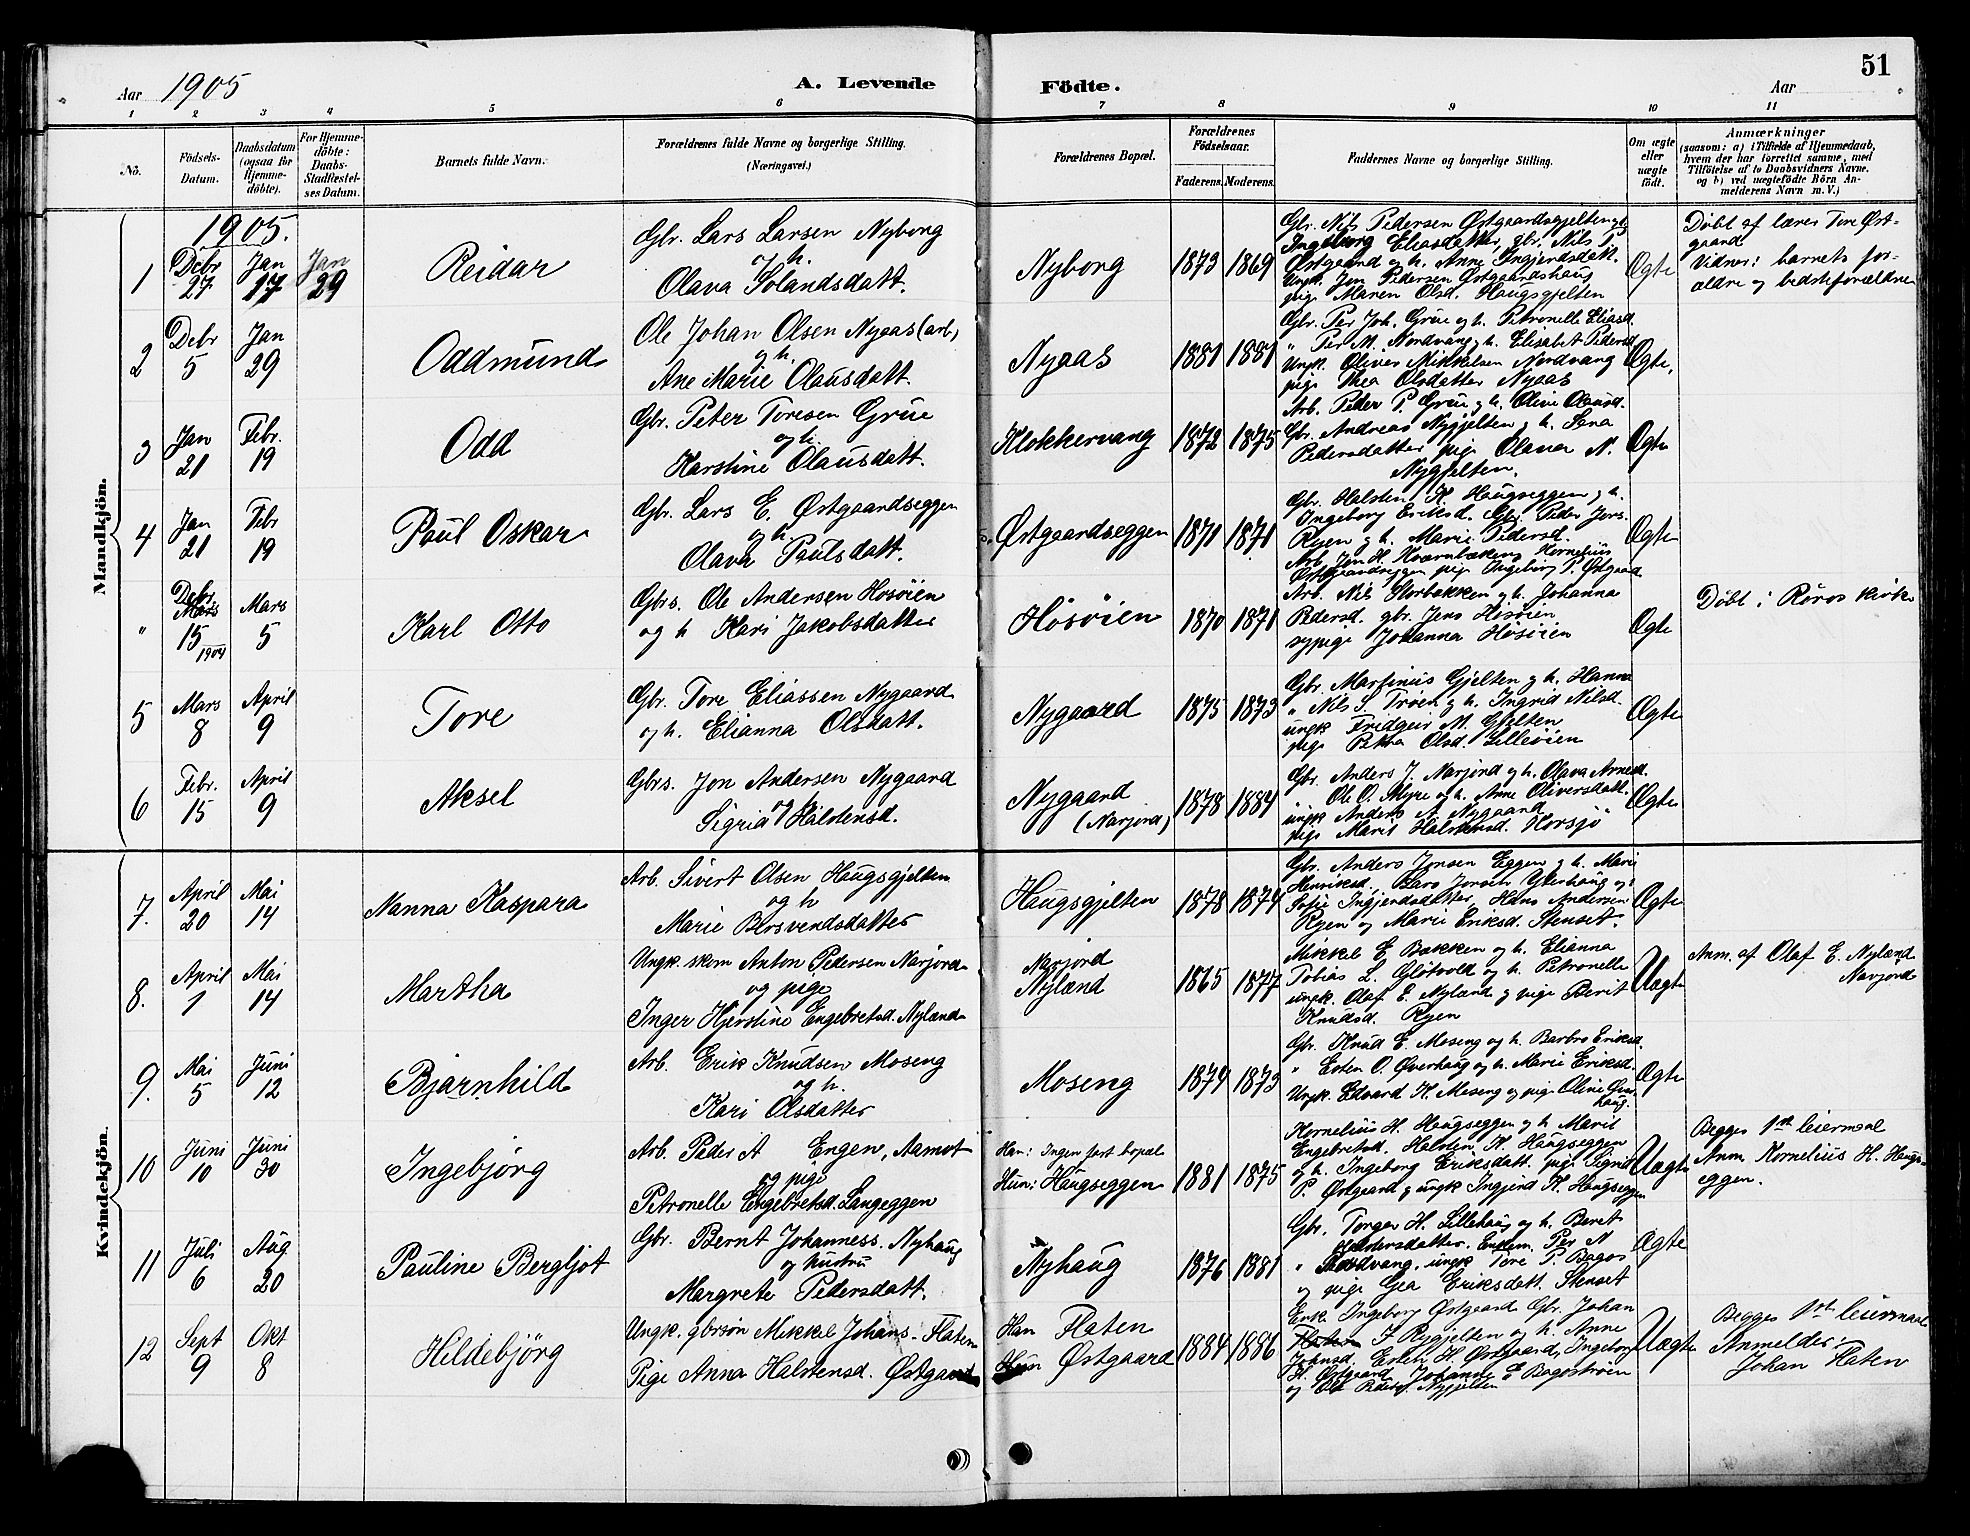 51
Aar 1905 A. Levende Födte. Aar
1 2 3 4 5 6 7 8 9 10 11
No.
Födsels-Datum.
Daabsdatum (ogsaa för Hjemme-döbte).
For Hjemme-döbte: Daabs-Stadfæstel-ses Datum.
Barnets fulde Navn.
Forældrenes fulde Navne og borgerlige Stilling. (Næringsvei.)
Forældrenes Bopæl.
Forældrenes Födselsaar.
Faderens. Moderens.
Faddernes Navne og borgerlige Stilling.
Om ægte eller uægte födt.
Anmærkninger
(saasom: a) i Tilfælde af Hjemmedaab,
hvem der har forrettet samme, med
Tilföielse af to Daabsvidners Navne,
og b) ved uægtefödte Börn An-
melderens Navn m. V.)
Mandkjön.
1905.
1 Debr 27 Jan 17 Jan 29 Reidar
Gbr. Lars Larsen Nyborg
og h.
Olava Solandsdatt.
Nyborg 1873 1869
Gbr. Nils Pedersen Østgaardsgjelten og
Ingeborg Eliasdatter, gbr. Nils P.
Østgaard og h. Anne Ingjerdsdatt.
Ungk. Jon Pedersen Østgaardshaug
pige Maren Olsd. Haugsgjelten
Ægte
Døbt af lærer Tore Øst-
gaard
Vidner: barnets for-
ældre og bedsteforældre
2 Debr 5 Jan 29 Oddmund
Ole Johan Olsen Nyaas (arb)
og h.
Ane Marie Olausdatt.
Nyaas 1881 1881
Gbr. Per Joh. Grue og h. Petronelle Eliasd.
" Per M. Nordvang og h. Elisabet Pedersd
Ungk. Oliver Mikkelsen Nordvang
pige Thea Olsdatter Nyaas
Ægte.
3 Jan 21 Febr. 19 Odd
Gbr. Peter Toresen Grue
og h.
Karstine Olausdatt.
Klokkervang 1872 1875
Arb. Peder P. Grue og h. Olive Olausd.
Gbr. Andreas Nygjelten og h. Sana
Pedersdatter pige Olava N.
Nygjelten.
Ægte
4 Jan 21 Febr 19 Paul Oskar
Gbr. Lars E. Østgaardseggen
og h.
Olava Paulsdatt.
Østgaardseggen 1871 1871
Gbr. Halsten K. Haugseggen og h.
Ingeborg Eriksd. Gbr. Peder Jons.
Ryen og h. Marie Pedersd.
Arb. Jon H. Kværnbækeng Kornelius
Østgaardseggen pige Ingeborg P. Østgaard
Ægte
" Debr Mars 15 1904 Mars 5 Karl Otto
Gbrs. Ole Andersen Høsøien
og h Kari Jakobsdatter
Høsøien 1870 1871
Arb. Nils Storbakken og h. Johanna
Pedersd. gbr. Jens Høsøien
sypige Johanna Høsøien
Ægte
Døbt i Røros kirke
5 Mars 8 April 9 Tore
Gbr. Tore Eliassen Nygaard
og h. Elianna Olsdatt.
Nygaard 1875 1873
Gbr. Martinus Gjelten og h. Hanna
" Nils S. Trøen og h. Ingrid Nilsd.
ungk Fridgeir M. Gjelten
pige Petra Olsd. Lilleøien
Ægte
6 Febr. 15 April 9 Aksel
Gbrs. Jon Andersen Nygaard
og h.
Sigrid Halstensd.
Nygaard
(Narjord) 1878 1884
Gbr. Anders J. Narjord og h. Olava Arnesd.
Ole O. Myre og h. Anne Oliversdatt.
ungk Anders A. Nygaard
pige Marit Halstensd. Korsjø
Ægte
Kvindekjön.
7. April 20 Mai 14 Nanna Kaspara
Arb. Sivert Olsen Haugsgjelten
og h
Marie Bersvendsdatter
Haugsgjelten 1878 1874
Gbr. Anders Jonsen Eggen og h. Mari
Henriksd. Lars Jonsen Ytterhaug og
Sofie Ingjerdsdatter, Hans Andersen
Ryen og Marie Eriksd. Stenset.
Ægte
8. April 1 Mai 14 Martha
Ungk. skom Anton Pedersen Narjord
og pige
Inger Kjerstine Engebretsd. Nylænd
Narjord
Nylænd 1865 1877
Mikkel E Bakken og h. Elianna
Tobias L. Gløtvold og h. Petronelle
ungk. Olaf E. Nylænd og pige Berit
Knudsd. Ryen
Uægte
Anm. af Olaf E. Nylænd
Narjord
9. Mai 5 Juni 12 Bjarnhild
Arb. Erik Knudsen Moseng
og h.
Kari Olsdatter
Moseng 1879 1873
Gbr. Knud E. Moseng og h. Barbro Eriksd.
" Esten O. Øverhaug og h. Marie Eriksd.
Ungk. Edvard K. Moseng og pige Oline Øver-
haug.
Ægte
10 Juni 10 Juni 30 Ingebjørg
Arb. Peder A Engen, Aamot
og pige
Petronelle Engebretsd. Langeggen
Han: Ingen fast bopæl
Hun: Haugseggen 1881 1875
Kornelius H. Haugseggen og h Marit
Engebretsd, Halsten K. Haugseggen
og h. Ingeborg Eriksdatt. pige Sigrid
P. Østgaard og ungk Ingjerd K. Haugseggen
Uægte
Begges 1ste leiermaal
Anm. Kornelius H. Haugs-
eggen.
11 Juli 6 Aug 20 Pauline Bergljot
Gbr. Bernt Johanness. Nyhaug
og hustru
Margrete Pedersdatt.
Nyhaug 1876 1881
Gbr. Torger H. Lillehaug og h. Beret
Pedersdatter. Enkem. Per N
" Nordvang, ungk Tore P. Bagos
og pige Gea Eriksdatt. Stenset
Ægte
12 Sept 9 Okt 8 Hildebjørg
Ungk. gbrsøn Mikkel Johans. Flaten
Pige Anna Halstensd. Østgaard
Han Flaten
Hun Østgaard 1884 1886
Enk. Ingeborg Østgaard Gbr. Johan
J Rygjelten og h. Anne
Johnsd. Esten H. Østgaard, Ingeborg
H. Østgaard Johanne E Bagostrøen
og Ole Peders. Nygjelten
Uægte
Begges 1ste leiermaal
Anmelder:
Johan Flaten